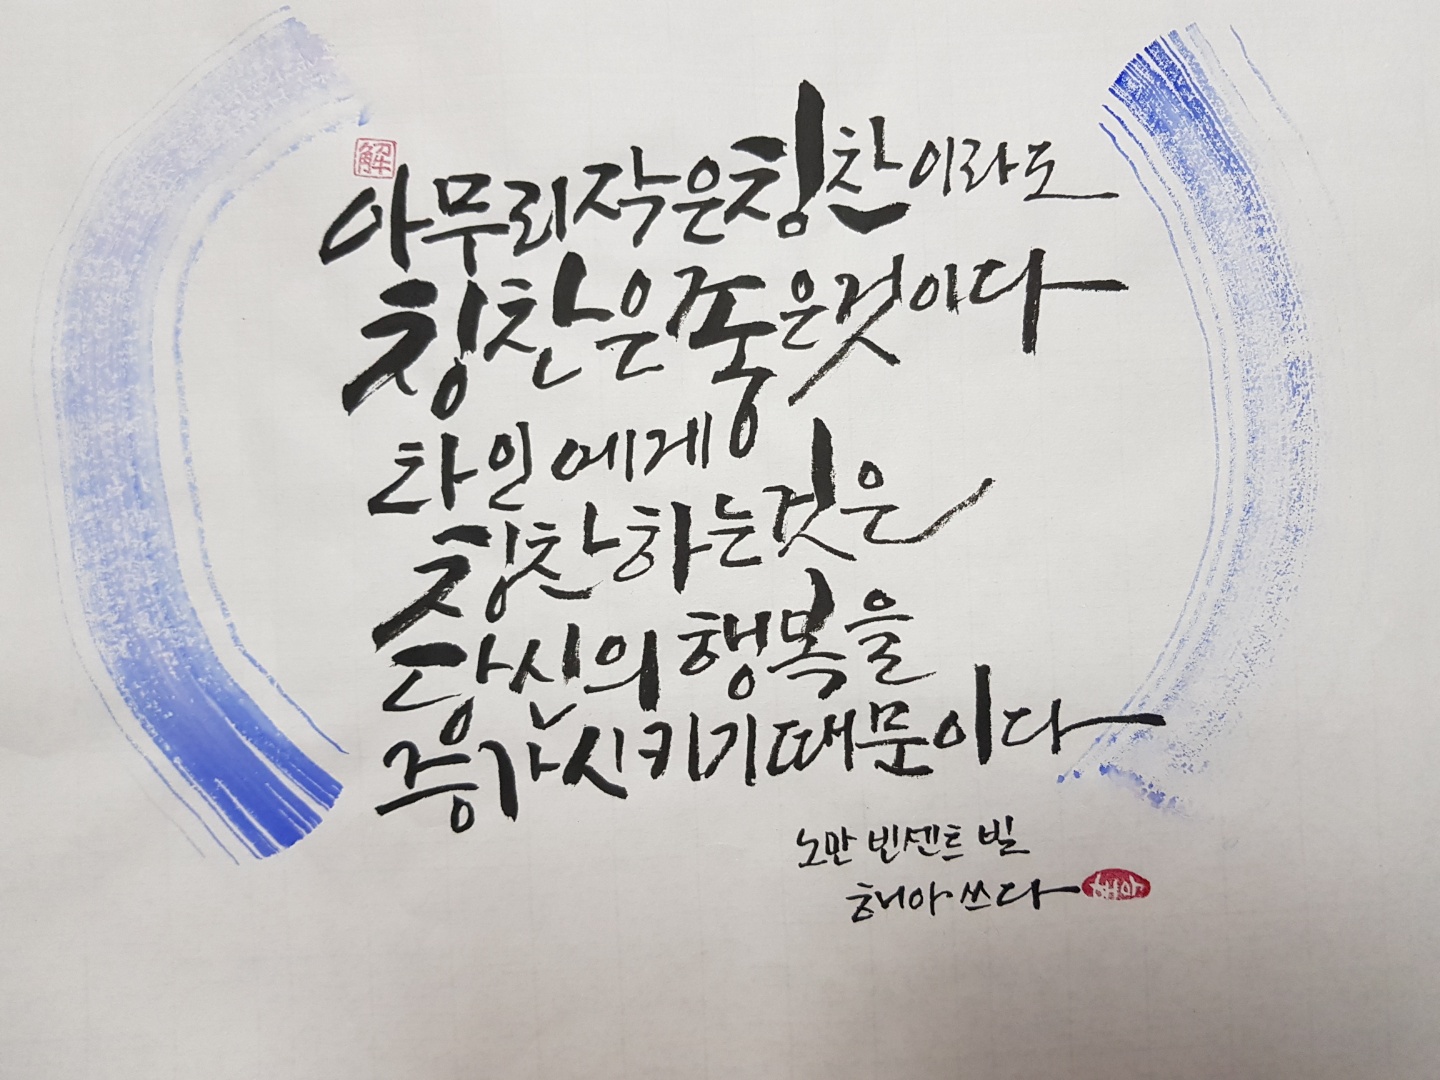 解
아무리 작은 칭찬이라도
칭찬은 좋은 것이다
타인에게
칭찬하는 것은
당신의 행복을
증가시키기 때문이다
노만 빈센트 빌
해아 쓰다
해아